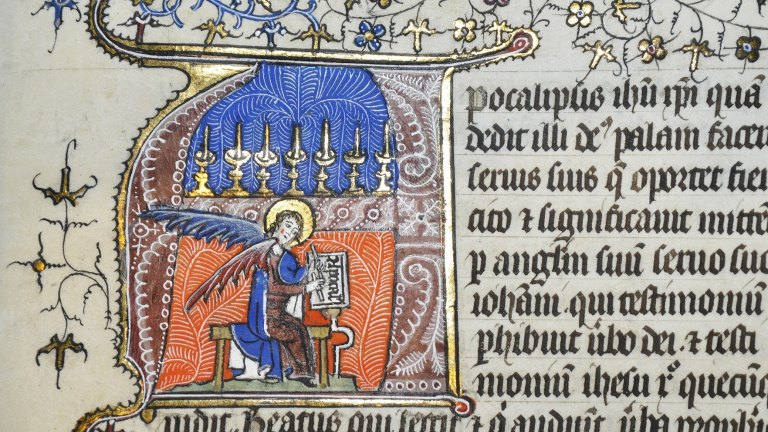 Apocalipsis ihū xp̄i quā
dedit illi deꝰ palam facere
seruis suis q̄ oportet fieri
cito ⁊ significauit mitten
p angl̄m suū seruo suo
iohāni. qui testimoniū
phibuit ūbo dei. ⁊ testi
monium ihesu xº. quecūq
uidit. Beatus qui legit ⁊ q̄ audiunt ūba